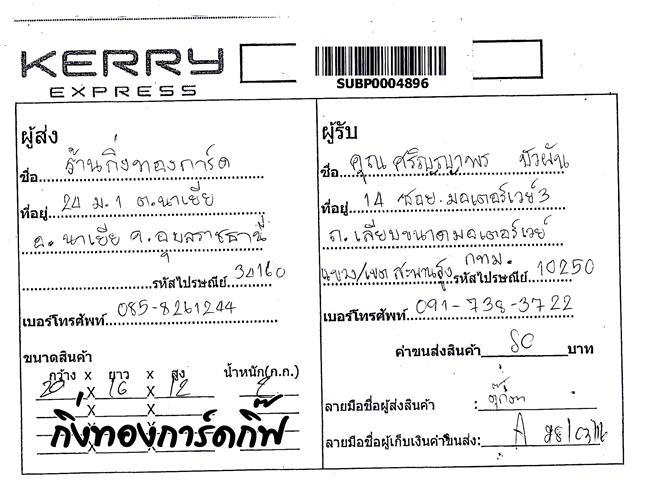 KERRY
EXPRESS
SUBP0004896
ผู้ส่ง
ชื่อ ร้านกิ่งทองการ์ด
ที่อยู่ 24 ม.1 ต.นาเยีย
อ. นาเยีย จ. อุบลราชธานี
รหัสไปรษณีย์ 34160
เบอร์โทรศัพท์ 085-8261244
ขนาดสินค้า
กว้าง x ยาว x สูง น้ำหนัก(ก.ก.)
20 x 16 x 12
x x
กิ่งทองการ์ดกิ๊ฟ
x x
ผู้รับ
ชื่อ คุณ ศรัญญาพร บัวผัน
ที่อยู่ 14 ซอย. มอเตอร์เวย์ 3
ถ. เลียบขนาดมอเตอร์เวย์
แขวง/เขต สะพานสูง กทม. รหัสไปรษณีย์ 10250
เบอร์โทรศัพท์ 091-738-3722
ค่าขนส่งสินค้า 80 บาท
ลายมือชื่อผู้ส่งสินค้า : ตุ๊กตา
ลายมือชื่อผู้เก็บเงินค่าขนส่ง: